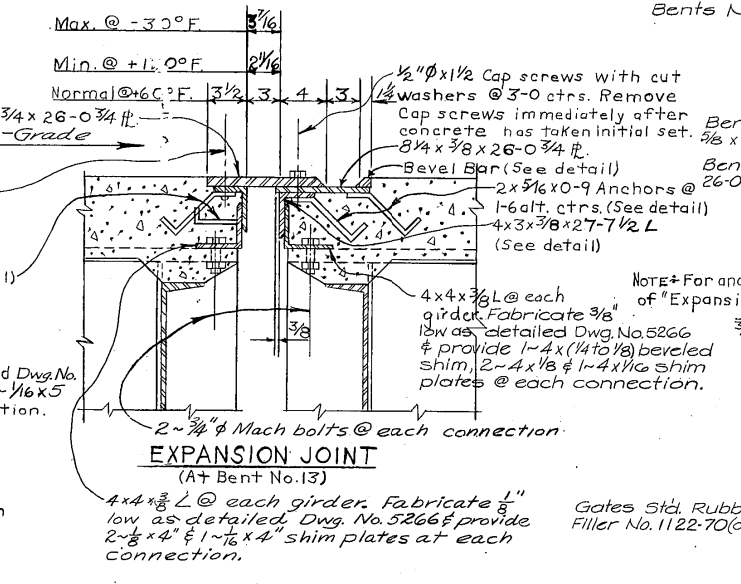 Bents N
Max. @ -30°F. 3 7/16
Min. @ +120°F. 2 11/16
Normal @ +60°F. 3 1/2 3 4 3 1 1/4
1/2"Φ x 1 1/2 Cap screws with cut
washers @ 3-0 ctrs. Remove
Cap screws immediately after
concrete has taken initial set.
3/4 x 26-0 3/4 PL.
-Grade
8 1/4 x 3/8 x 26-0 3/4 PL.
Bevel Bar (See detail)
2 x 5/16 x 0-9 Anchors @
1-6 alt. ctrs. (See detail)
4x3x3/8 x 27-7 1/2 L
(See detail)
Ben
5/8 x
Ben
26-0
1)
NOTE: For anc
of "Expansi
4x4x3/8 L @ each
girder. Fabricate 3/8"
low as detailed Dwg. No. 5266
& provide 1~4x(1/4 to 1/8) beveled
shim, 2~4x1/8 & 1~4x1/16 shim
plates @ each connection.
3/8
d Dwg. No.
~1/16 x 5
tion.
2~3/4"Φ Mach bolts @ each connection
EXPANSION JOINT
(At Bent No. 13)
4x4x3/8 L @ each girder. Fabricate 1/8"
low as detailed Dwg. No. 5266 & provide
2~1/8 x 4" & 1~1/16 x 4" shim plates at each
connection.
Gates Std. Rubb
Filler No. 1122-70(